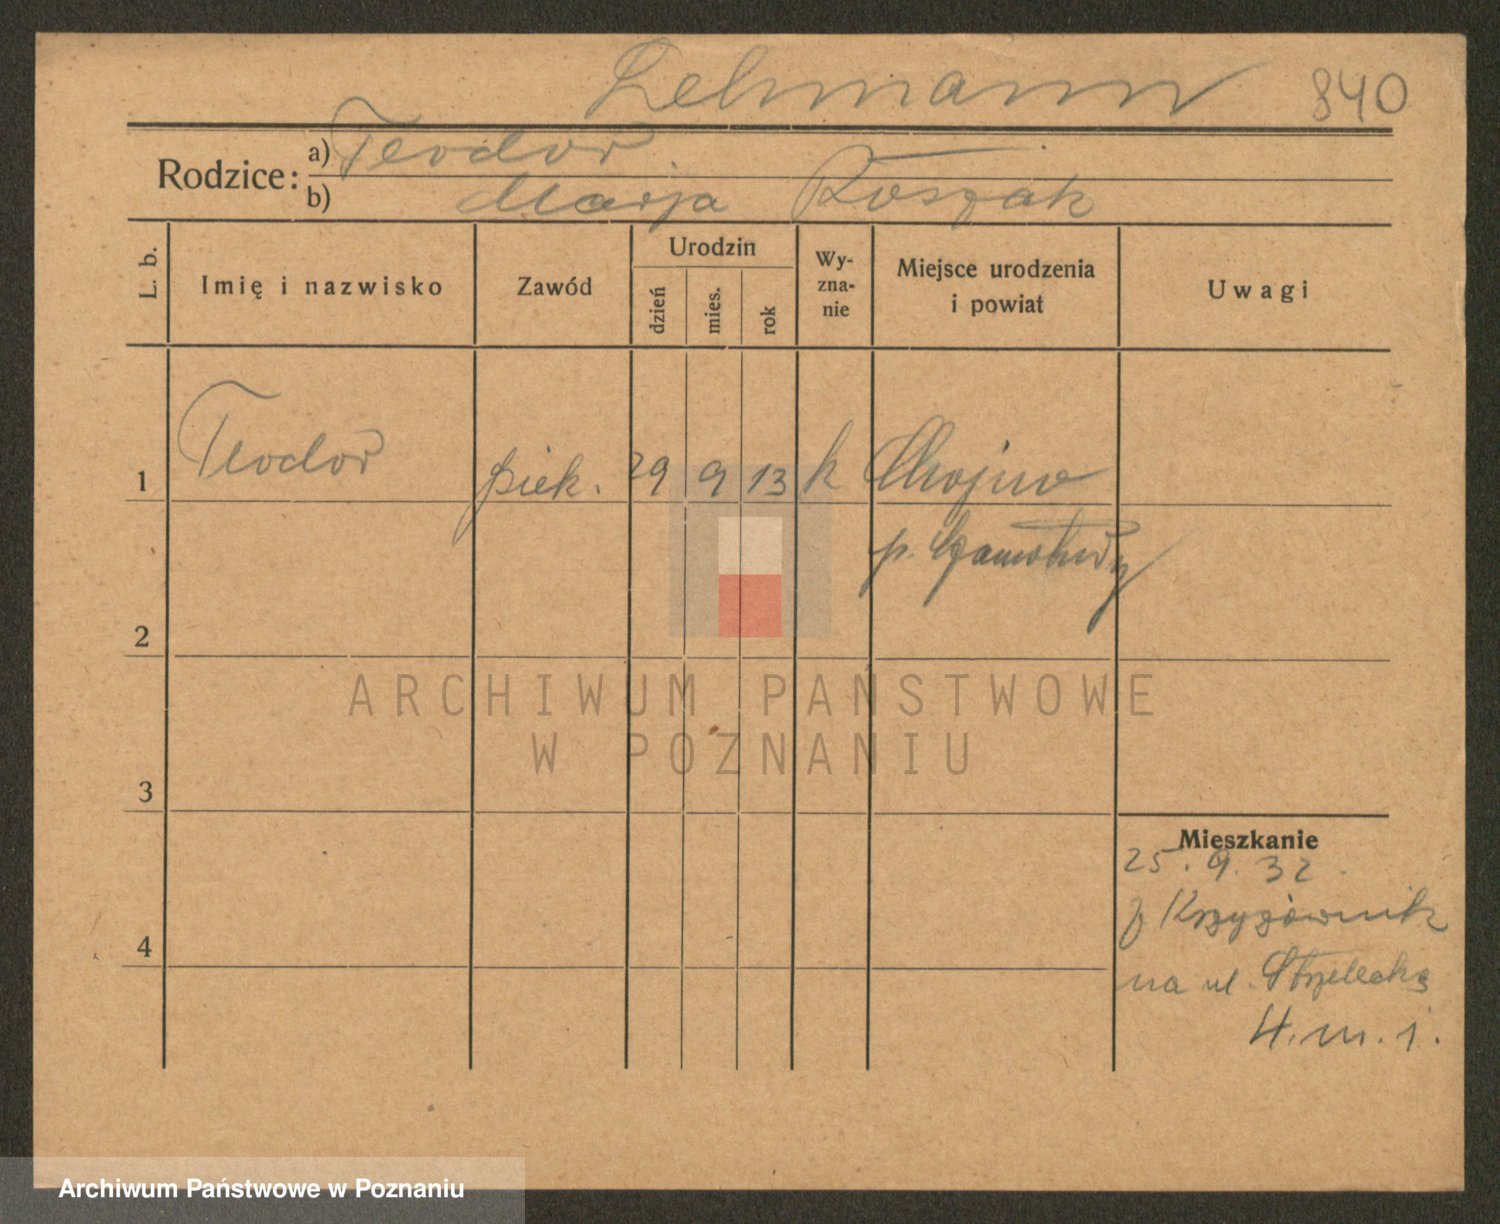 Lehmann 840
Rodzice: a) Teodor
b) Marja Roszak
L. b. Imię i nazwisko Zawód Urodzin dzień mies. rok Wy-zna-nie Miejsce urodzenia i powiat Uwagi
1 Teodor piek. 29 9 13 k Chojno
p. Szamotuły
2
ARCHIWUM PAŃSTWOWE
W POZNANIU
3
Mieszkanie
25.9.32.
z Krzyżownik
4
na ul. Strzelecką
4. m. 1.
Archiwum Państwowe w Poznaniu